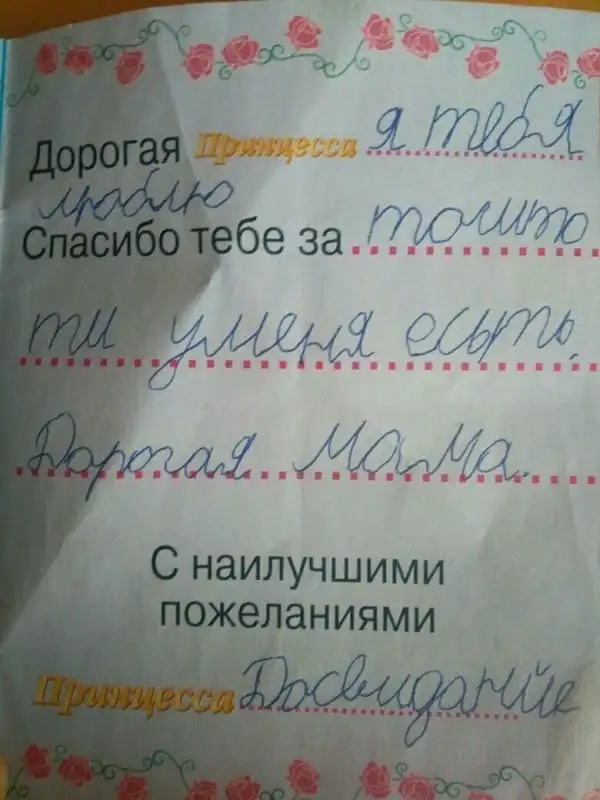 Дорогая Принцесса я тебя
люблю
Спасибо тебе за тошто
ти уменя есыть.
Дорогая Мама.
С наилучшими
пожеланиями
Принцесса Досвиданйе